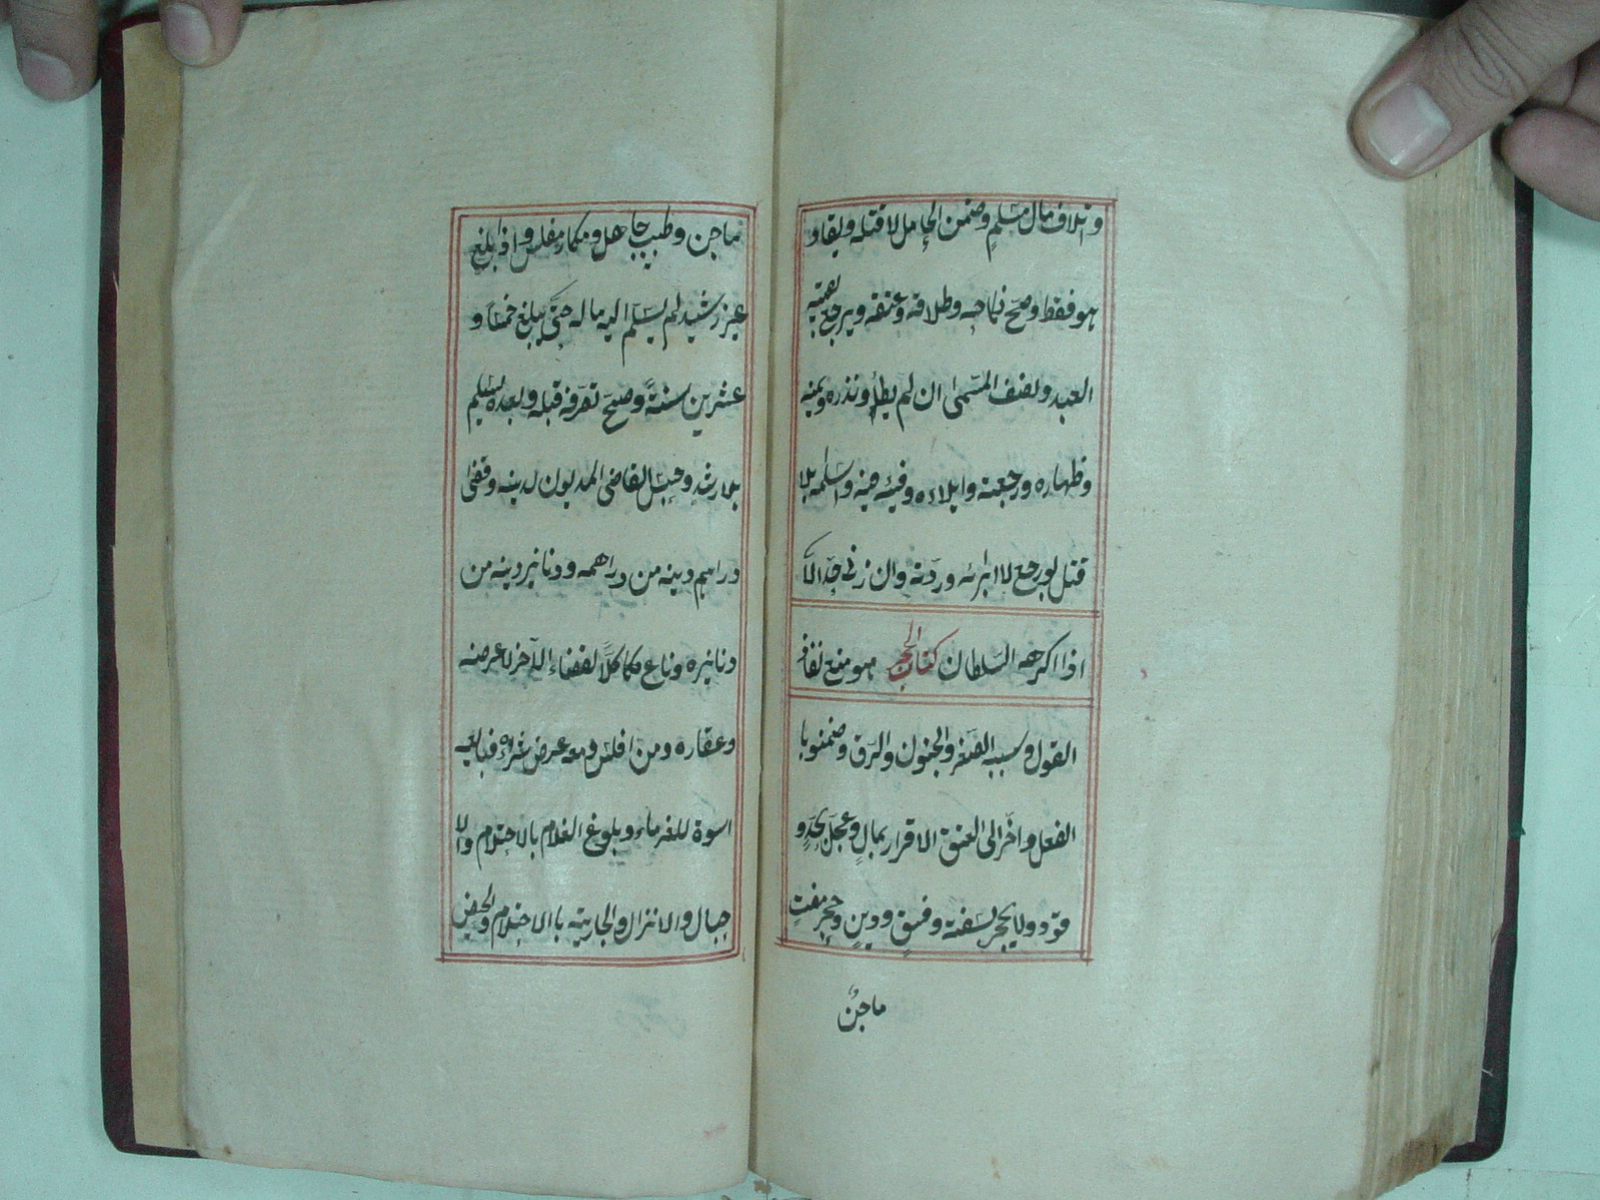 واتلاف مال مسلم وضمن الحامل لا قتله ويقاد
هو فقط وصح نكاحه وطلاقه وعتقه ويرجع بقيمة
العبد ونصف المسمى ان لم يطأ ونذره ويمينه
وظهاره ورجعته وايلاءه وفيئه فيه واسلامه بلا
قتل لو رجع لا ابرائه وردته وان زنى حد الا
اذا اكرهه السلطان كتاب الحجر هو منع نفاذ
القول وسببه الصغر والجنون والرق وضمنوا با
الفعل واخر الى العتق الاقرار بمال وعجل بحد و
قود ولا يحجر بسفه وفسق ودين وحجر مفت
ماجن
ماجن وطبيب جاهل ومكار مفلس واذا بلغ
غير رشيد لم يسلم اليه ماله حتى يبلغ خمسا و
عشرين سنة وصح تصرفه قبله وبعده يسلم
بلا رشد وحبس القاضى المديون لدينه وقضى
دراهم دينه من دراهمه ودنانير دينه من
دنانيره وباع كلا لقضاء الآخر لا عرضه
وعقاره ومن افلس ومعه عرض شراه فبايعه
اسوة للغرماء وبلوغ الغلام بالاحتلام والا
حبال والانزال والجارية باالاحتلام والحيض